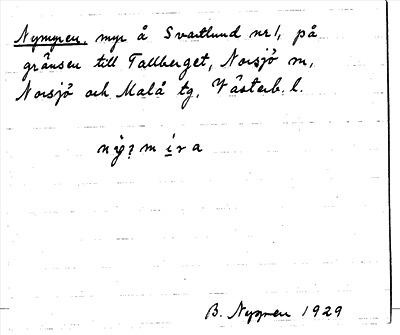 Nymyren, myr å Svartlund nr 1, på
gränsen till Tallberget, Norsjö sn,
Norsjö och Malå tg, Västerb. l.
B. Nygren 1929